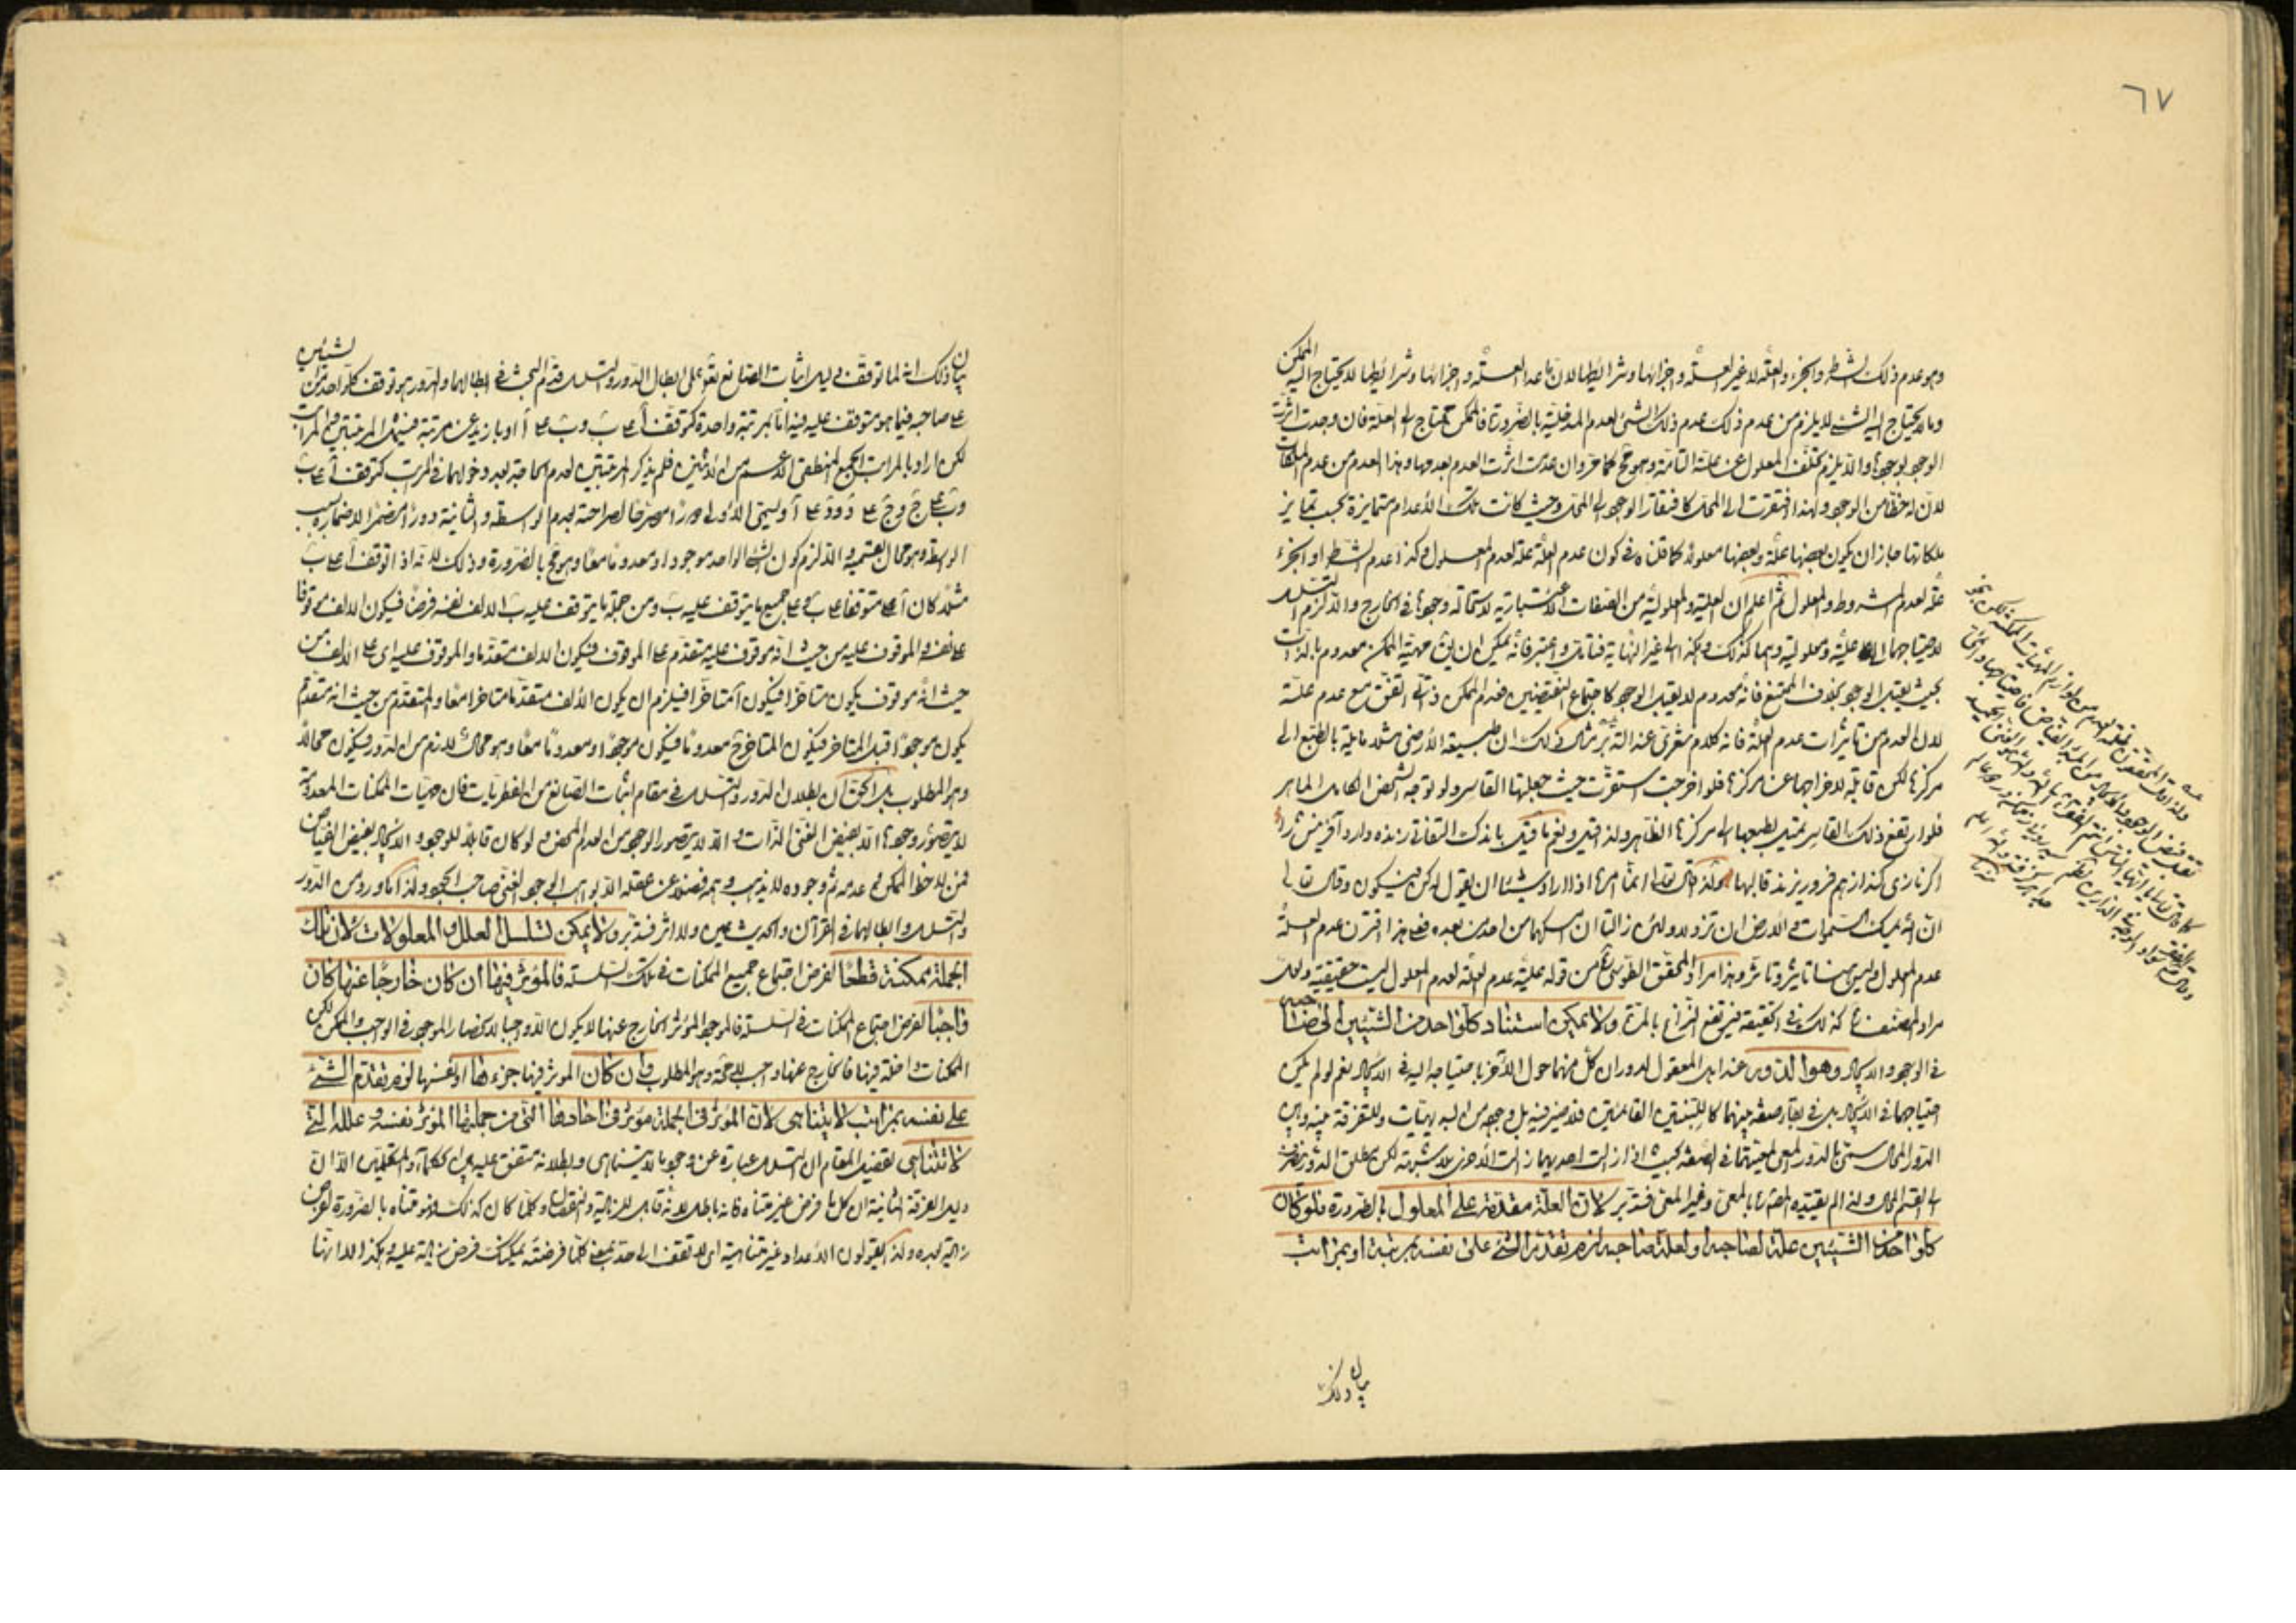 ٦٧
وهو عدم ذلك الشرط والجزء والعلّة لا غير العلّة واجزائها وشرائطها لان ما عدا العلّة واجزائها وشرائطها لا يحتاج اليه الممكن
وما لا يحتاج اليه الشئ لا يلزم من عدم ذلك عدم ذلك الشئ لعدم المدخليّة بالضرورة فالممكن يحتاج الى العلّة فان وجدت اثرت
الوجود بوجودها والا يلزم تخلّف المعلول عن علّته التامّة وهو مح كما مرّ وان عدمت اثرت العدم بعدمها وهذا العدم من عدم الملكات
لان له حظّا من الوجود ولهذا افتقرت الى المحل كافتقار الوجود الى المحل وحيث كانت تلك الاعدام متمايزة بحسب تمايز
ملكاتها جاز ان يكون بعضها علّة وبعضها معلولا كما قلناه في كون عدم العلّة علّة لعدم المعلول وكذا عدم الشرط او الجزء
علّة لعدم المشروط والمعلول ثم اعلم ان العليّة والمعلوليّة من الصفات الاعتبارية لاستحالة وجودها في الخارج والا لزم التسلسل
لاحتياجهما الى عليّة ومعلولية وهما كذلك وهكذا الى غير النهاية فتامّل واعتبر فانه يمكن ان يق مهيّة الممكن معدوم بالذات
بحيث يقبل الوجود بخلاف الممتنع فانه معدوم لا يقبل الوجود كاجتماع النقيضين فعدم الممكن ذاتي اتفق مع عدم علّته
لا ان العدم من تاثيرات عدم العلّة فانه كلام شعري عند التدبّر مثال ذلك ان طبيعة الارض مثلا مايلة بالطبع الى
مركزها لكن قابلة لاخراجها عن مركزها فلو اخرجت استقرّت حيث جعلها القاسر ولو توجه الشخص الكامل الماهر
فلو ارتفع ذلك القاسر تميل بطبعها الى مركزها الظاهر ولذا قيل ونعم ما قيل باندك التفاتى زنده دارد آفرينش را
اكر نازى كند از هم فرو ريزند قالبها ولذا قال تعالى انما امره اذا اراد شيئا ان يقول له كن فيكون وقال تعالى
ان الله يمسك السموات والارض ان تزولا ولئن زالتا ان امسكهما من احد من بعده فعلى هذا اقترن عدم العلّة
عدم المعلول وليس هنا تاثير وتاثّر وهذا مراد المحقق الطوسي من قوله عليّة عدم العلّة لعدم المعلول ليست حقيقية ولعل
مراد المصنف كذلك في الحقيقة فيرتفع النزاع بالمرّة ولا يمكن استناد كل واحد من الشيئين الى صاحبه
في الوجود والايجاد وهو الدور عند اهل المعقول لدوران كل منهما حول الآخر باحتياجه اليه في الايجاد نعم لو لم يكن
احتياجهما في الايجاد بل في بقاء صفة بينهما كاللبنتين القائمتين فلا ضير فيه بل وجوده من البديهيّات وللتفرقة بينه وبين
الدور المحال سمّي بالدور المعي لمعيّتهما في الصفة بحيث اذا زالت احديهما زالت الاخرى بلا شبهة لكن يطلق الدور ينصرف
الى القسم المحال ولذا لم يقيّده المص بالمعي وغير المعي فتدبّر لان العلّة متقدّمة على المعلول بالضرورة فلو كان
كل واحد من الشيئين علّة لصاحبه او لعلّة صاحبه لزم تقدّم الشئ على نفسه بمرتبة او بمراتب
بيان ذلك
بيان ذلك انه لما توقف دليل اثبات الصانع تعالى على ابطال الدور والتسلسل قدّم البحث في ابطالهما والدور هو توقف كل واحد من الشيئين
على صاحبه فيما هو متوقف عليه فيه اما بمرتبة واحدة كتوقف آ على ب وب على آ او بازيد عن مرتبة فيشمل المرتبتين والمراتب
لكن اراد بالمراتب الجمع المنطقي الاعم من الاثنين فلم يذكر المرتبتين لعدم الحاجة بعد دخولهما في المراتب كتوقف آ على ب
وب على ج وج على د ود على آ ويسمى الاولى دورا مصرّحا لصراحته بعدم الواسطة والثانية دورا مضمرا لاضماره بسبب
الواسطة وهو محال بقسميه والا لزم كون الشئ الواحد موجودا ومعدوما معا وهو مح بالضرورة وذلك لانه اذا توقف آ على ب
مثلا كان آ متوقفا على ب وعلى جميع ما يتوقف عليه ب ومن جملة ما يتوقف عليه ب الالف نفسه فرضا فيكون الالف موقوفا
على نفسه والموقوف عليه من حيث انه موقوف عليه متقدّم على الموقوف فيكون الالف متقدّما والموقوف عليه اى على الالف من
حيث انه موقوف يكون متاخرا فيكون آ متاخرا فيلزم ان يكون الالف متقدّما متاخرا معا والمتقدّم من حيث انه متقدّم
يكون موجودا قبل المتاخر فيكون المتاخر ح معدوما فيكون موجودا ومعدوما معا وهو محال لازم من الدور فيكون محالا
وهو المطلوب بل الحق ان بطلان الدور والتسلسل في مقام اثبات الصانع من الفطريات فان مهيّات الممكنات المعدومة
لا يتصوّر وجودها الا بفيض الغني الذات والا لا يتصور الوجود من العدم المحض ولو كان قابلا للوجود والايجاد بفيض الفياض
فمن لاحظ الممكن في عدمه ثم وجوده لا يذهب وهمه فضلا عن عقله الا بواهب الوجود الغني صاحب الجود ولذا ما ورد من الدور
والتسلسل وابطالهما في القرآن والحديث عين ولا اثر فتدبّر ولا يمكن تسلسل العلل والمعلولات لان تلك
الجملة ممكنة قطعا لفرض اجتماع جميع الممكنات في تلك السلسلة فالمؤثر فيها ان كان خارجا عنها كان
واجبا لفرض اجتماع الممكنات في السلسلة فالموجود المؤثر الخارج عنها لا يكون الا واجبا لانحصار الموجود في الواجب والممكن لكن
الممكنات داخلة فيها فالخارج عنها واجب لا محالة وهو المطلوب وان كان المؤثر فيها جزءها او نفسها لزم تقدم الشئ
على نفسه بمراتب لا يتناهى لان المؤثر في الجملة مؤثر في آحادها التي من جملتها المؤثر نفسه وعلله التي
لا تتناهى تفصيل المقام ان التسلسل عبارة عن وجود ما لا يتناهى وبطلانه متفق عليه بين الحكماء والمتكلمين الا ان
دليل الفرقة الثانية ان كل ما فرض غير متناه فانه باطل لانه قابل للزيادة والنقصان وكلما كان كذلك فهو متناه بالضرورة لفرض
زيادة بعده ولذا يقولون الاعداد غير متناهية اى لا تقف الى حد بمعنى كلما فرضته يمكنك فرض زيادة عليه وهكذا لا انها